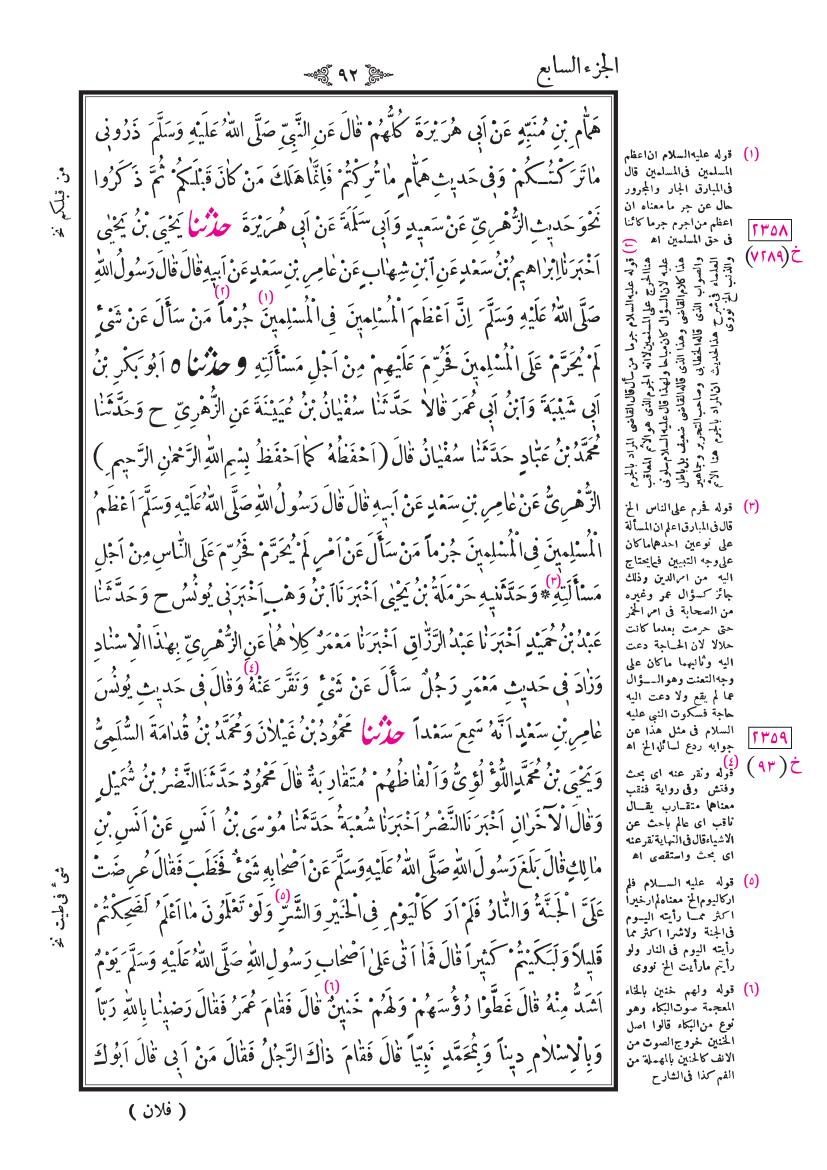 الجزء السابع
٩٢
هَمَّامِ بْنِ مُنَبِّهٍ عَنْ اَبِى هُرَيْرَةَ كُلُّهُمْ قَالَ عَنِ النَّبِىِّ صَلَّى اللهُ عَلَيْهِ وَسَلَّمَ ذَرُونِى
مَا تَرَكْتُكُمْ وَفِى حَدِيثِ هَمَّامٍ مَا تُرِكْتُمْ فَاِنَّمَا هَلَكَ مَنْ كَانَ قَبْلَكُمْ ثُمَّ ذَكَرُوا
نَحْوَ حَدِيثِ الزُّهْرِىِّ عَنْ سَعِيدٍ وَاَبِى سَلَمَةَ عَنْ اَبِى هُرَيْرَةَ حَدَّثَنَا يَحْيَى بْنُ يَحْيٰى
اَخْبَرَنَا اِبْرَاهِيمُ بْنُ سَعْدٍ عَنِ ابْنِ شِهَابٍ عَنْ عَامِرِ بْنِ سَعْدٍ عَنْ اَبِيهِ قَالَ قَالَ رَسُولُ اللهِ
صَلَّى اللهُ عَلَيْهِ وَسَلَّمَ اِنَّ اَعْظَمَ الْمُسْلِمِينَ فِى الْمُسْلِمِينَ (١) جُرْماً (٢) مَنْ سَأَلَ عَنْ شَىْءٍ
لَمْ يُحَرَّمْ عَلَى الْمُسْلِمِينَ فَحُرِّمَ عَلَيْهِمْ مِنْ اَجْلِ مَسْأَلَتِهِ وحَدَّثَنَا ٥ اَبُو بَكْرِ بْنُ
اَبِى شَيْبَةَ وَابْنُ اَبِى عُمَرَ قَالَا حَدَّثَنَا سُفْيَانُ بْنُ عُيَيْنَةَ عَنِ الزُّهْرِىِّ ح وَحَدَّثَنَا
مُحَمَّدُ بْنُ عَبَّادٍ حَدَّثَنَا سُفْيَانُ قَالَ (اَحْفَظُهُ كَمَا اَحْفَظُ بِسْمِ اللهِ الرَّحْمٰنِ الرَّحِيمِ)
الزُّهْرِىُّ عَنْ عَامِرِ بْنِ سَعْدٍ عَنْ اَبِيهِ قَالَ قَالَ رَسُولُ اللهِ صَلَّى اللهُ عَلَيْهِ وَسَلَّمَ اَعْظَمُ
الْمُسْلِمِينَ فِى الْمُسْلِمِينَ جُرْماً مَنْ سَأَلَ عَنْ اَمْرٍ لَمْ يُحَرَّمْ فَحُرِّمَ عَلَى النَّاسِ مِنْ اَجْلِ
مَسْأَلَتِهِ (٣) * وَحَدَّثَنِيهِ حَرْمَلَةُ بْنُ يَحْيٰى اَخْبَرَنَا ابْنُ وَهْبٍ اَخْبَرَنِى يُونُسُ ح وَحَدَّثَنَا
عَبْدُ بْنُ حُمَيْدٍ اَخْبَرَنَا عَبْدُ الرَّزَّاقِ اَخْبَرَنَا مَعْمَرٌ كِلَاهُمَا عَنِ الزُّهْرِىِّ بِهٰذَا الْاِسْنَادِ
وَزَادَ فِى حَدِيثِ مَعْمَرٍ رَجُلٌ سَأَلَ عَنْ شَىْءٍ وَنَقَّرَ عَنْهُ (٤) وَقَالَ فِى حَدِيثِ يُونُسَ
عَامِرِ بْنِ سَعْدٍ اَنَّهُ سَمِعَ سَعْداً حَدَّثَنَا مَحْمُودُ بْنُ غَيْلَانَ وَمُحَمَّدُ بْنُ قُدَامَةَ السُّلَمِىُّ
وَيَحْيَى بْنُ مُحَمَّدٍ اللُّؤْلُؤِىُّ وَاَلْفَاظُهُمْ مُتَقَارِبَةٌ قَالَ مَحْمُودٌ حَدَّثَنَا النَّضْرُ بْنُ شُمَيْلٍ
وَقَالَ الْآخَرَانِ اَخْبَرَنَا النَّضْرُ اَخْبَرَنَا شُعْبَةُ حَدَّثَنَا مُوسَى بْنُ اَنَسٍ عَنْ اَنَسِ بْنِ
مَالِكٍ قَالَ بَلَغَ رَسُولَ اللهِ صَلَّى اللهُ عَلَيْهِ وَسَلَّمَ عَنْ اَصْحَابِهِ شَىْءٌ فَخَطَبَ فَقَالَ عُرِضَتْ
عَلَىَّ الْجَنَّةُ وَالنَّارُ فَلَمْ اَرَ كَالْيَوْمِ فِى الْخَيْرِ وَالشَّرِّ (٥) وَلَوْ تَعْلَمُونَ مَا اَعْلَمُ لَضَحِكْتُمْ
قَلِيلاً وَلَبَكَيْتُمْ كَثِيراً قَالَ فَمَا اَتٰى عَلٰى اَصْحَابِ رَسُولِ اللهِ صَلَّى اللهُ عَلَيْهِ وَسَلَّمَ يَوْمٌ
اَشَدُّ مِنْهُ قَالَ غَطَّوْا رُؤُسَهُمْ وَلَهُمْ خَنِينٌ (٦) قَالَ فَقَامَ عُمَرُ فَقَالَ رَضِينَا بِاللهِ رَبّاً
وَبِالْاِسْلَامِ دِيناً وَبِمُحَمَّدٍ نَبِيّاً قَالَ فَقَامَ ذَاكَ الرَّجُلُ فَقَالَ مَنْ اَبِى قَالَ اَبُوكَ
( فلان )
من قبلكم نخ
شىء فى طيبت نخ
(١) قوله عليه السلام ان اعظم
المسلمين فى المسلمين قال
فى المبارق الجار والمجرور
حال عن جرما معناه ان
اعظم من اجرم جرما كائنا
فى حق المسلمين اه
٢٣٥٨
خ (٧٢٨٩)
(٢) قوله عليه السلام جرما من سأل قال القاضى المراد بالجرم
هنا الحرج على المسلمين لا انه الجرم الذى هو الاثم المعاقب
عليه لان السؤال كان مباحا ولهذا قال عليه السلام سلونى
هذا كلام القاضى وهذا الذى قاله القاضى ضعيف بل باطل
والصواب الذى قاله الخطابى وصاحب التحرير وجماهير
العلماء فى شرح هذا الحديث ان المراد بالجرم هنا الاثم
والذنب الخ نووى
(٣) قوله فحرم على الناس الخ
قال فى المبارق اعلم ان المسألة
على نوعين احدهما ما كان
على وجه التبيين فيما يحتاج
اليه من امر الدين وذلك
جائز كسؤال عمر وغيره
من الصحابة فى امر الخمر
حتى حرمت بعدما كانت
حلالا لان الحاجة دعت
اليه وثانيهما ما كان على
وجه التعنت وهو السؤال
عما لم يقع ولا دعت اليه
حاجة فسكوت النبى عليه
السلام فى مثل هذا عن
جوابه ردع لسائله الخ اه
٢٣٥٩
خ (٩٣)
(٤) قوله ونقر عنه اى بحث
وفتش وفى رواية فنقب
معناهما متقارب يقال
ناقب اى عالم باحث عن
الاشياء قال فى النهاية نقر عنه
اى بحث واستقصى اه
(٥) قوله عليه السلام فلم
ار كاليوم الخ معناه لم ار خيرا
اكثر مما رأيته اليوم
فى الجنة ولا شرا اكثر مما
رأيته اليوم فى النار ولو
رأيتم ما رأيت الخ نووى
(٦) قوله ولهم خنين بالخاء
المعجمة صوت البكاء وهو
نوع من البكاء قالوا اصل
الخنين خروج الصوت من
الانف كالحنين بالمهملة من
الفم كذا فى الشارح